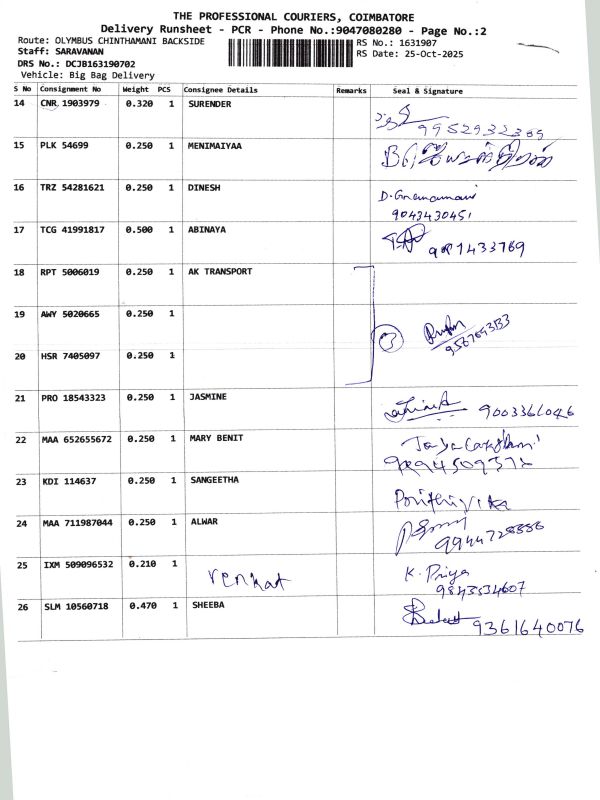 THE PROFESSIONAL COURIERS, COIMBATORE
Delivery Runsheet - PCR - Phone No.:9047080280 - Page No.:2
Route: OLYMBUS CHINTHAMANI BACKSIDE
RS No.: 1631907
Staff: SARAVANAN
RS Date: 25-Oct-2025
DRS No.: DCJB163190702
Vehicle: Big Bag Delivery
S No Consignment No Weight PCS Consignee Details Remarks Seal & Signature
14 CNR 1903979 0.320 1 SURENDER
9952932369
15 PLK 54699 0.250 1 MENIMAIYAA
16 TRZ 54281621 0.250 1 DINESH
D. Gnanamani
9043430451
17 TCG 41991817 0.500 1 ABINAYA
18 RPT 5006019 0.250 1 AK TRANSPORT
19 AWY 5020665 0.250 1
3
20 HSR 7405097 0.250 1
21 PRO 18543323 0.250 1 JASMINE
9003361046
22 MAA 652655672 0.250 1 MARY BENIT
23 KDI 114637 0.250 1 SANGEETHA
24 MAA 711987044 0.250 1 ALWAR
25 IXM 509096532 0.210 1 venkat
K. Priya
9843534607
26 SLM 10560718 0.470 1 SHEEBA
9361640076